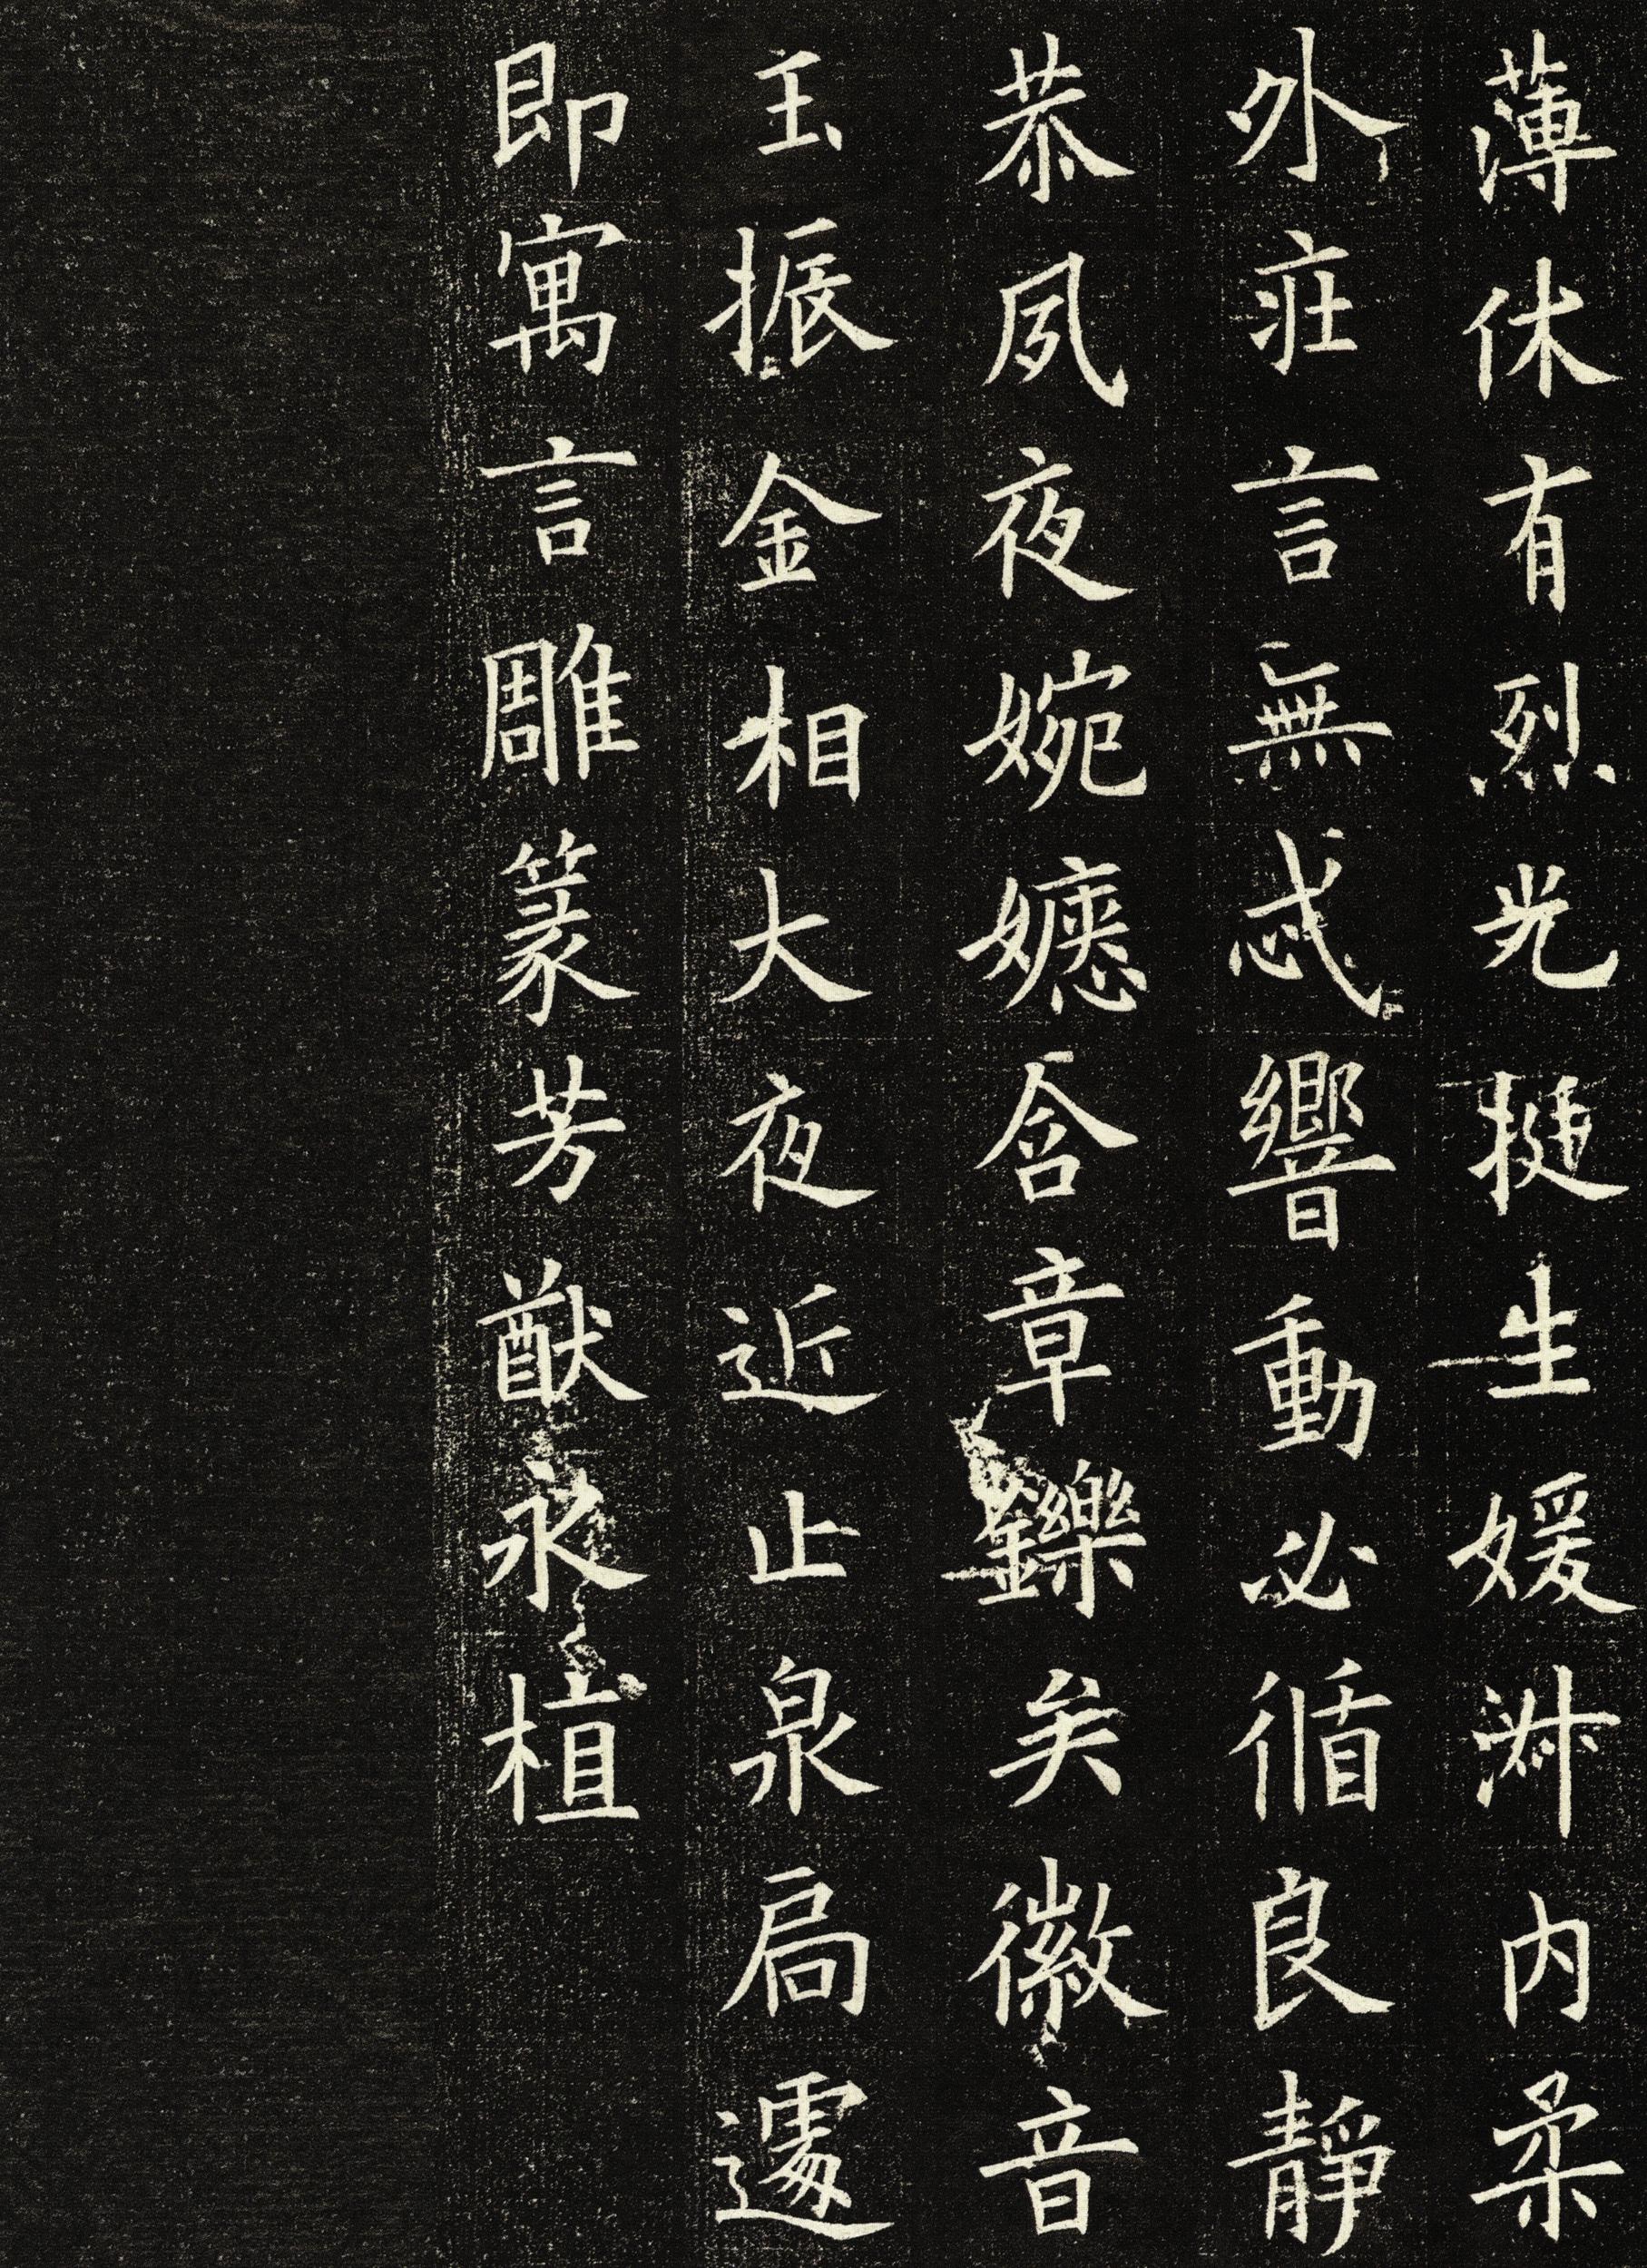 薄休有烈光挺生媛淑内柔
外莊言無忒響動必循良靜
恭夙夜婉嫕含章鑠矣徽音
玉振金相大夜近止泉扃遽
即寓言雕篆芳猷永植